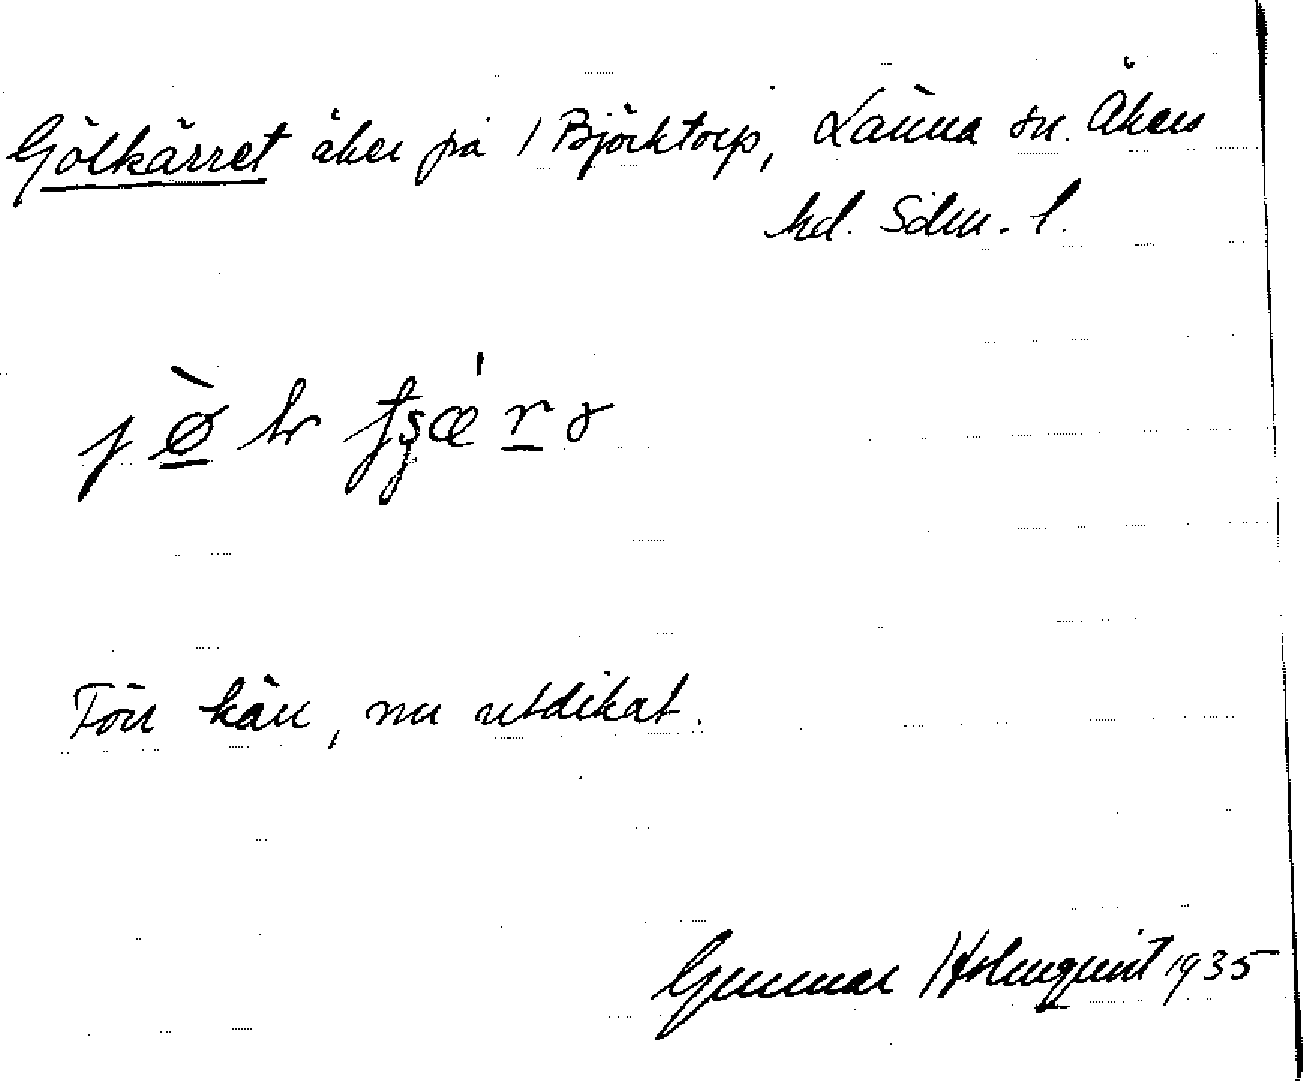 Gölkärret åker på 1 Björktorp, Länna sn. Åkers
hd. Södm. l.
Förr kärr, nu utdikat.
Gunnar Holmquist 1935